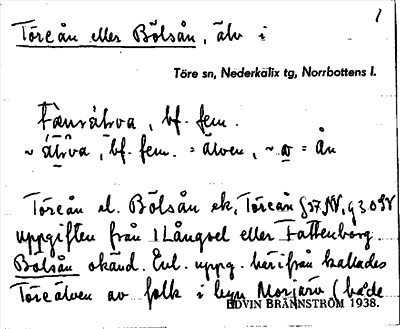 1
Töreån eller Bölsån, älv i
Töre sn, Nederkälix tg, Norrbottens l.
bf. fem.
~ bf. fem. = älven, ~ = ån
Töreån el. Bölsån ek. Töreån § 27 NV, g 30 SV
uppgiften från Långsel eller Fattenborg
Bölsån okänd. Enl. uppg. härifrån kallades
Töreälven av folk i byn Morjärv (både
EDVIN BRÄNNSTRÖM 1938.